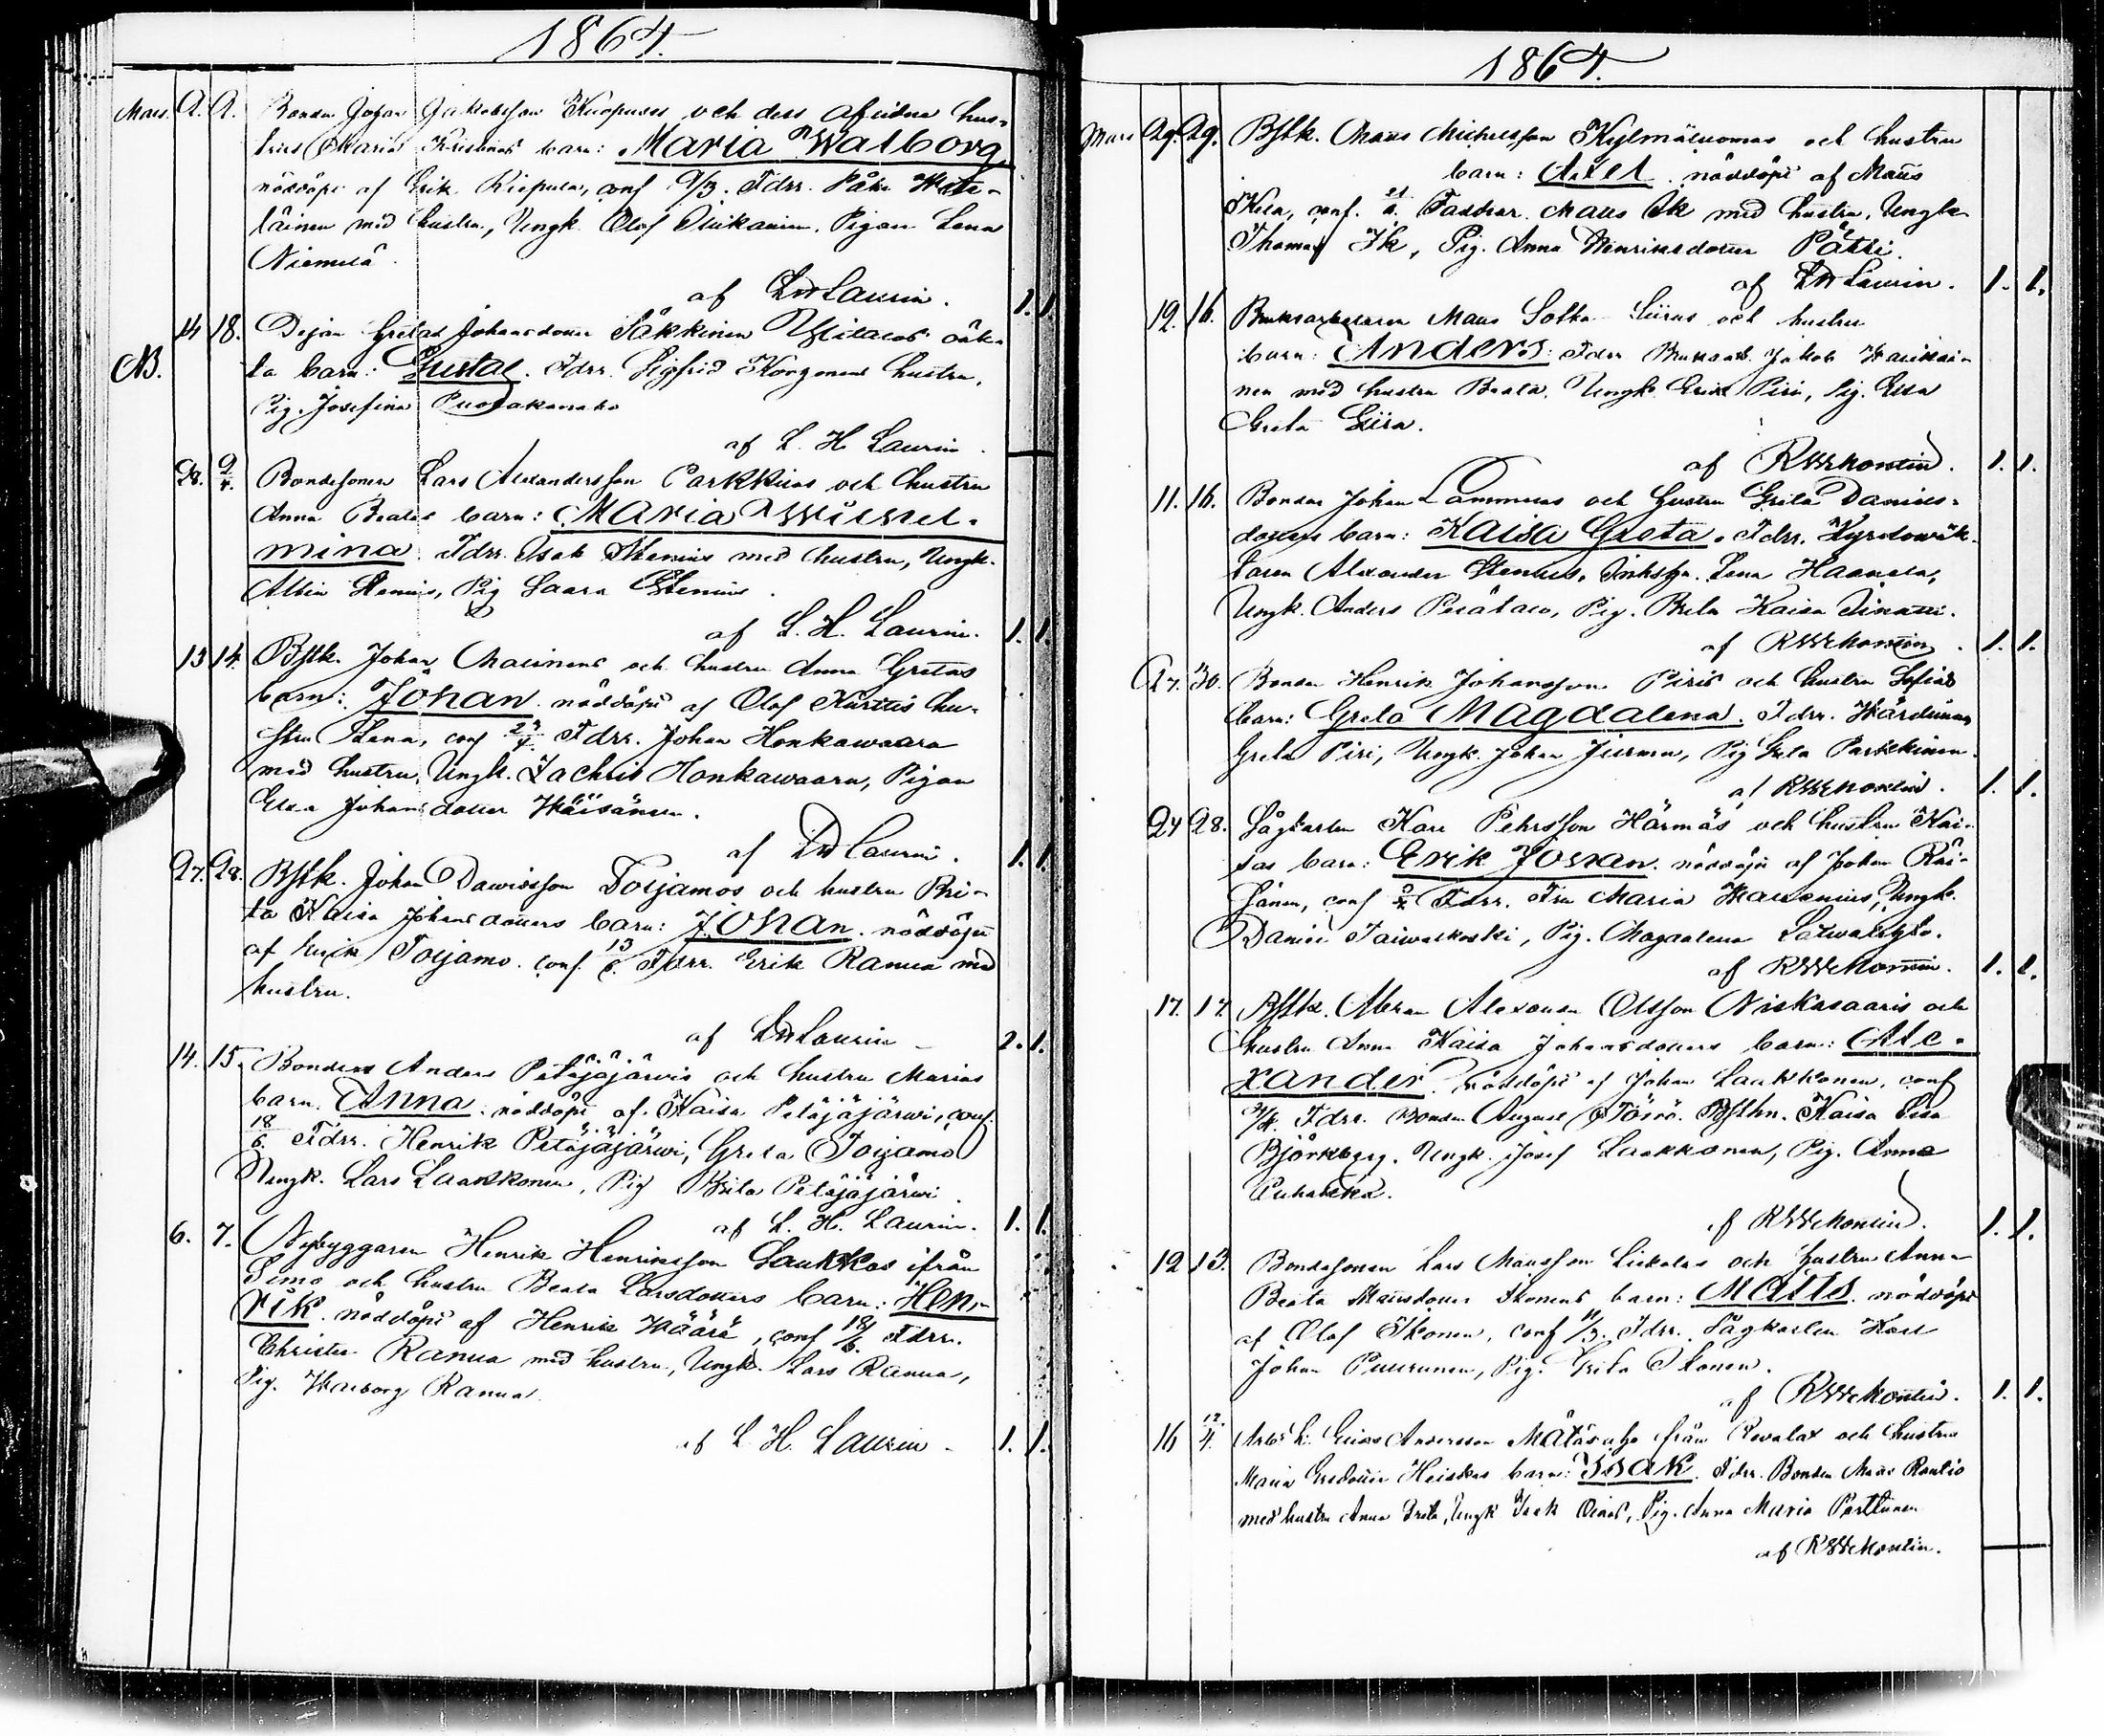 1864.
Mars. 2. 2. Bonden Johan Jakobsson Kuopusas och dess afvidna hus-
trus Maria barn: Maria Walborg
nöddöpt af Erik Riepula, conf 9/3. Fdrr. Påhl Wete-
läinen med hustru, Ungk. Olof Pigan Lena
Niemelä.
af LH Laurin. 1. 1.
14 18. Pigan Gretas Johansdotter Säkkinen oäk-
NB. ta barn: Gustaf. Fdrr. Sigfrid Korgonens hustru,
Pig. Josefina Puorakanaho
af L. H. Laurin
28. 2/4. Bondesonen Lars Alexandersson Parkkisas och hustru
Anna Beatas barn: Maria Wilhel-
mina. Fdrr. Isak Stenius med hustru, Ungk.
Albin Stenius, Pig Saara Stenius.
af L. H. Laurin. 1. 1.
13 14. Bstk. Johan Malinens och hustru Anna Gretas
barn: Johan. nöddöpt af Olof Kurttis hu-
stru Lena, conf 24/4. Fdrr. Johan Honkawaara
med hustru, Ungk. Zachris Honkawaara, Pigan
Elsa Johansdotter Wäisänen.
af LH Laurin. 1. 1.
27. 28. Bstk. Johan Dawidsson Toljamos och hustru Bri-
ta Kaisa Johansdotters barn: Johan. nöddöpt
af Erik Toljamo. conf. 13/6. Fdrr. Erik Ranua med
hustru.
af LH Laurin 2. 1.
14. 15. Bonden Anders Petäjäjärwis och hustru Marias
barn. Anna. nöddöpt af Kaisa Petäjäjärwi, conf.
18/6. Fdrr. Henrik Petäjäjärwi, Greta Toljamo
Ungk. Lars Laakkonen, Pig Brita Petäjäjärwi.
af L. H. Laurin. 1. 1.
6. 7. Nybyggaren Henrik Henriksson Laukkas ifrån
Simo och hustru Beata Larsdotters barn: Hen-
rik. nöddöpt af Henrik Wäärä, conf 18/6. Fdrr.
Christer Ranua med hustru, Ungk. Lars Ranua,
Pig. Walborg Ranua.
af L. H. Laurin 1. 1.
1864.
Mars 29. 29. Bstk. Mats Michelsson Kylmäluomas och hustru
barn: Axel. nöddöpt af Mats
Kela, conf. 21/6. Faddrar. Mats Ik med hustru, Ungk.
Thomas Ik, Pig. Anna Henriksdotter Pätsi.
af LH Laurin. 1. 1.
12. 16. Bruksarbetaren Mats Sotka-Siiras och hustru
barn: Anders. Fdrr Bruksarb. Jakob Waikai-
nen med hustru Beata. Ungk. Erik Piri, Pig. Elsa
Greta Siira.
af RWMontin. 1. 1.
11. 16. Bonden Johan Lammelas och hustru Greta Daniels-
dotters barn: Kaisa Greta. Fdrr. Kyrkowäk-
taren Alexander Stenius. Lena Haapala,
Ungk. Anders Perätalo, Pig. Brita Kaisa
af RWMontin. 1. 1.
27. 30. Bonden Henrik Johansson Piris och hustru Sofias
barn: Greta Magdalena. Fdrr. Wärdinnan
Greta Piri, Ungk. Johan Jurmu, Pig Greta Parkkinen.
af RWMontin. 1. 1.
24 28. Sågkarlen Karl Pehrsson Härmäs och hustru Kai-
sas barn: Erik Johan. nöddöpt af Johan Räi-
sänen, conf 2/4 Fdrr. Fru Maria Ungk.
Daniel Taiwalkoski, Pig. Magdalena
af RWMontin. 1. 1.
17. 17. Bstk. Abram Alexander Olsson Niskasaaris och
hustru Anna Kaisa Johansdotters barn: Ale-
xander. nöddöpt af Johan Laakkonen, conf
9/4. Fdrr. Bonden August Törrö. Bsthn. Kaisa Lisa
Björkberg. Ungk. Josef Laakkonen, Pig. Anna
Puhakka.
af RWMontin. 1. 1.
12 13. Bondesonen Lars Matsson Liekalas och hustru Anna
Beata Matsdotter Ikonens barn: Matts. nöddöpt
af Olof Ikonen, conf 11/3. Fdrr. Sågkarlen Karl
Johan Puurunen, Pig. Greta Ikonen.
af RWMontin. 1. 1.
16 12/4. Arb. Andersson Mätäsaho från Revolax och hustru
Maria Heiskas barn: Isak. Fdrr. Bonden Mats Rantio
med hustru Anna Greta, Ungk Isak Oinas, Pig. Anna Maria Perttunen
af RWMontin.